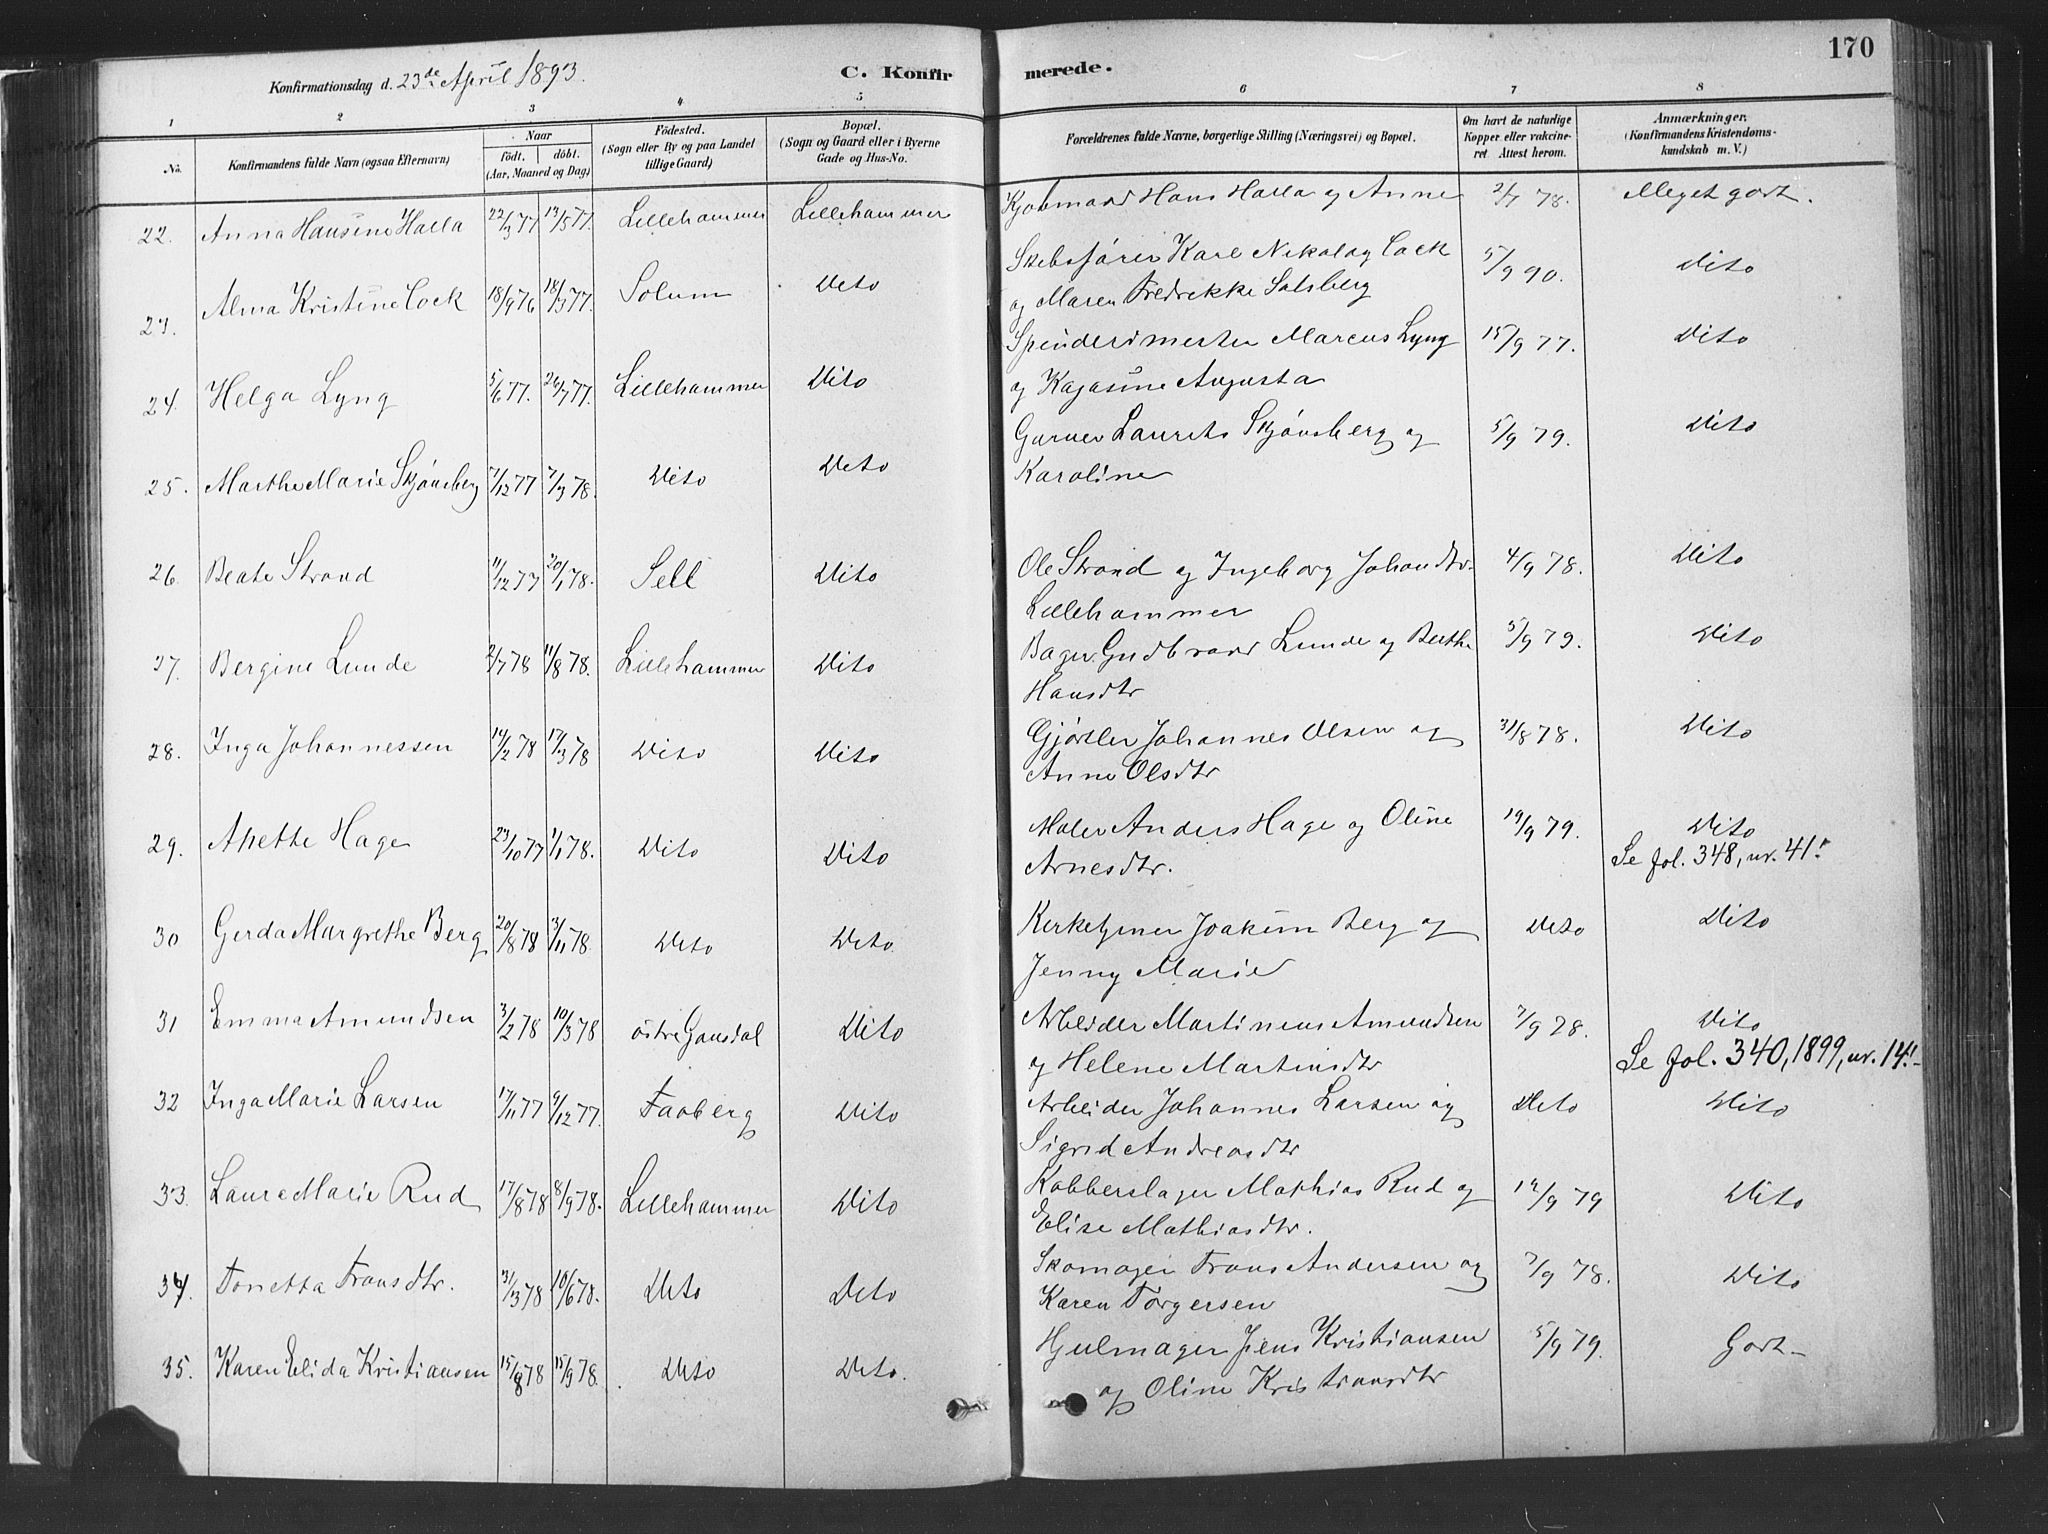 170
Konfirmationsdag d. 23de April 1893.
C. Konfirmerede.
1 2 3 4 5 6 7 8
No.
Konfirmandens fulde Navn (ogsaa Efternavn)
Naar
födt. döbt.
(Aar, Maaned og Dag)
Födested.
(Sogn eller By og paa Landet
tillige Gaard)
Bopæl.
(Sogn og Gaard eller i Byerne
Gade og Hus-No.
Forældrenes fulde Navne, borgerlige Stilling (Næringsvei) og Bopæl.
Om havt de naturlige
Kopper eller vakcine-
ret Attest herom.
Anmærkninger.
(Konfirmandens Kristendoms-
kundskab m. V.)
22. Anna Hansine Halla 22/3 77 13/5 77. Lillehammer Lillehammer Kjøbmand Hans Halla og Anne 2/7 78. Meget godt.
23. Alma Kristine Cock 18/9 76 18/3 77. Solum Dito Skibsfører Karl Nikolay Cock
og Maren Fredrekke Solsberg 5/9 90. Dito
24. Helga Lyng 5/6 77. 26/7 77. Lillehammer Dito Spinderimester Marcus Lyng
og Kajasine Augusta 15/9 77. Dito
25. Marthe Marie Skjønsberg 7/12 77 7/3 78. Dito Dito Garver Laurits Skjønsberg og
Karoline 5/9 79. Dito
26. Beate Strand 11/12 77 20/1 78. Sell Dito Ole Strand og Ingeborg Johansdtr.
Lillehammer 4/9 78. Dito
27. Bergine Lunde 2/7 78 11/8 78. Lillehammer Dito Bager Gudbrand Lunde og Berthe
Hansdtr 5/9 79. Dito
28. Inga Johannessen 14/2 78 17/3 78 Dito Dito Gjørtler Johannes Olsen og
Anne Olsdtr 31/8 78. Dito
29. Anette Hage 23/10 77 1/1 78. Dito Dito Maler Anders Hage og Oline
Arnesdtr. 19/9 79. Dito
Se fol. 348, nr. 41!
30 Gerda Margrethe Berg 20/8 78 3/11 78. Dito Dito. Kirketjener Joakim Berg og
Jenny Marie Dito Dito
31 Emma Amundsen 3/2 78 10/3 78 østre Gausdal Dito Arbeider Martinius Amundsen
og Helene Martinsdtr 7/9 78. Dito
Se fol. 340, 1899, nr. 14!
32 Inga Marie Larsen 17/11 77 9/12 77. Faaberg Dito Arbeider Johannes Larsen og
Sigrid Andreasdtr Dito Dito
33. Laura Marie Rud 17/8 78 8/9 78. Lillehammer Dito Kobberslager Mathias Rud og
Elise Mathiasdtr. 19/9 79 Dito
34. Tonetta Fransdtr. 31/3 78 10/6 78. Dito Dito Skomager Frans Andersen og
Karen Torgersen 7/9 78. Dito
35. Karen Elida Kristiansen 15/8 78 15/9 78. Dito Dito. Hjulmager Jens Kristiansen
og Oline Kristiansdtr 5/9 79. Godt